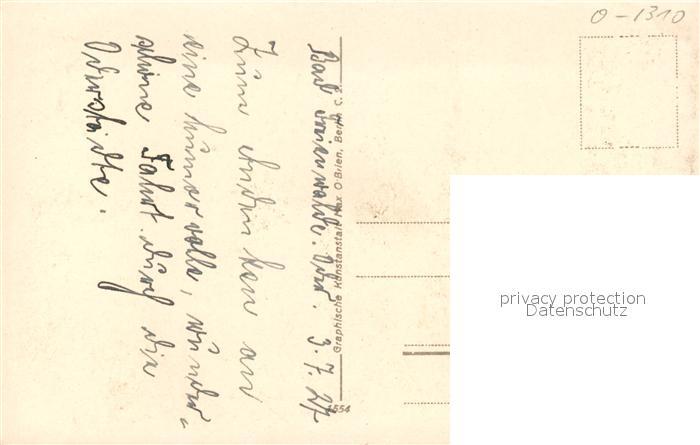 O-1310
Bad Freienwalde. Oder. 3.7.27
Zum Andenken an
eine humorvolle, wunder=
schöne Fahrt durch die
Oderstädte.
Graphische Kunstanstalt Max O'Brien, Berlin C. 2.
1554
privacy protection
Datenschutz